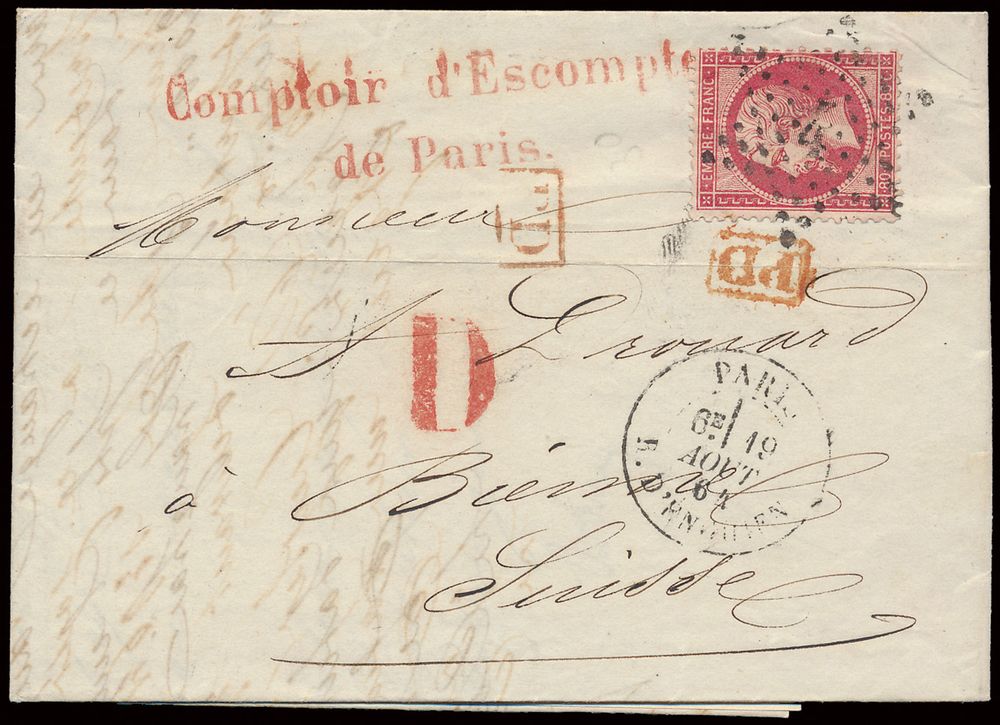 Comptoir d'Escompte
de Paris.
EMPIRE FRANC.
POSTES
80 80
Monsieur
PD
PD
D
PARIS
6E 19
AOUT
64
R. D'ENGHIEN
à
Suisse